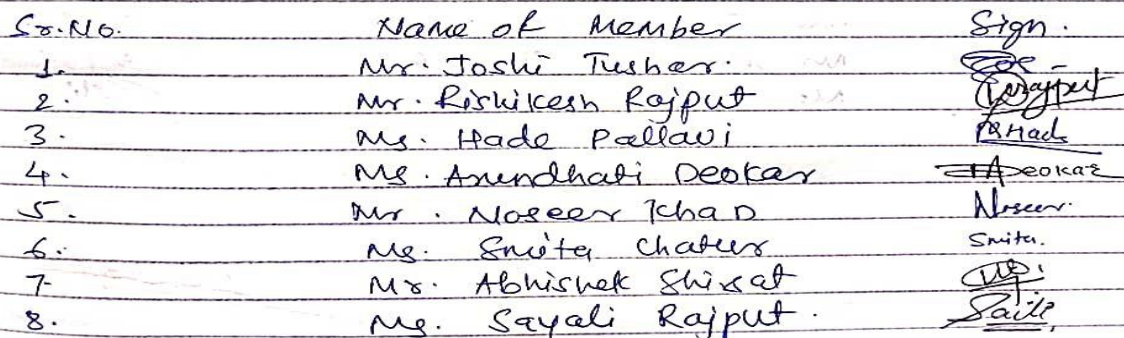 Sr.No. Name of Member Sign.
1. Mr. Joshi Tushar.
2. Mr. Rishikesh Rajput Rajput
3. Ms. Hade Pallavi Hade
4. Ms. Arundhati Deokar ADeokar
5. Mr. Noseer Khan Noseer.
6. Ms. Smita Chatur Smita.
7. Mr. Abhishek Shirsat
8. Ms. Sayali Rajput.